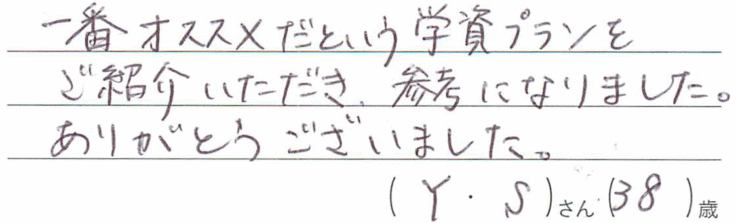 一番オススメだという学資プランを
ご紹介いただき、参考になりました。
ありがとうございました。
(Y・S)さん(38)歳